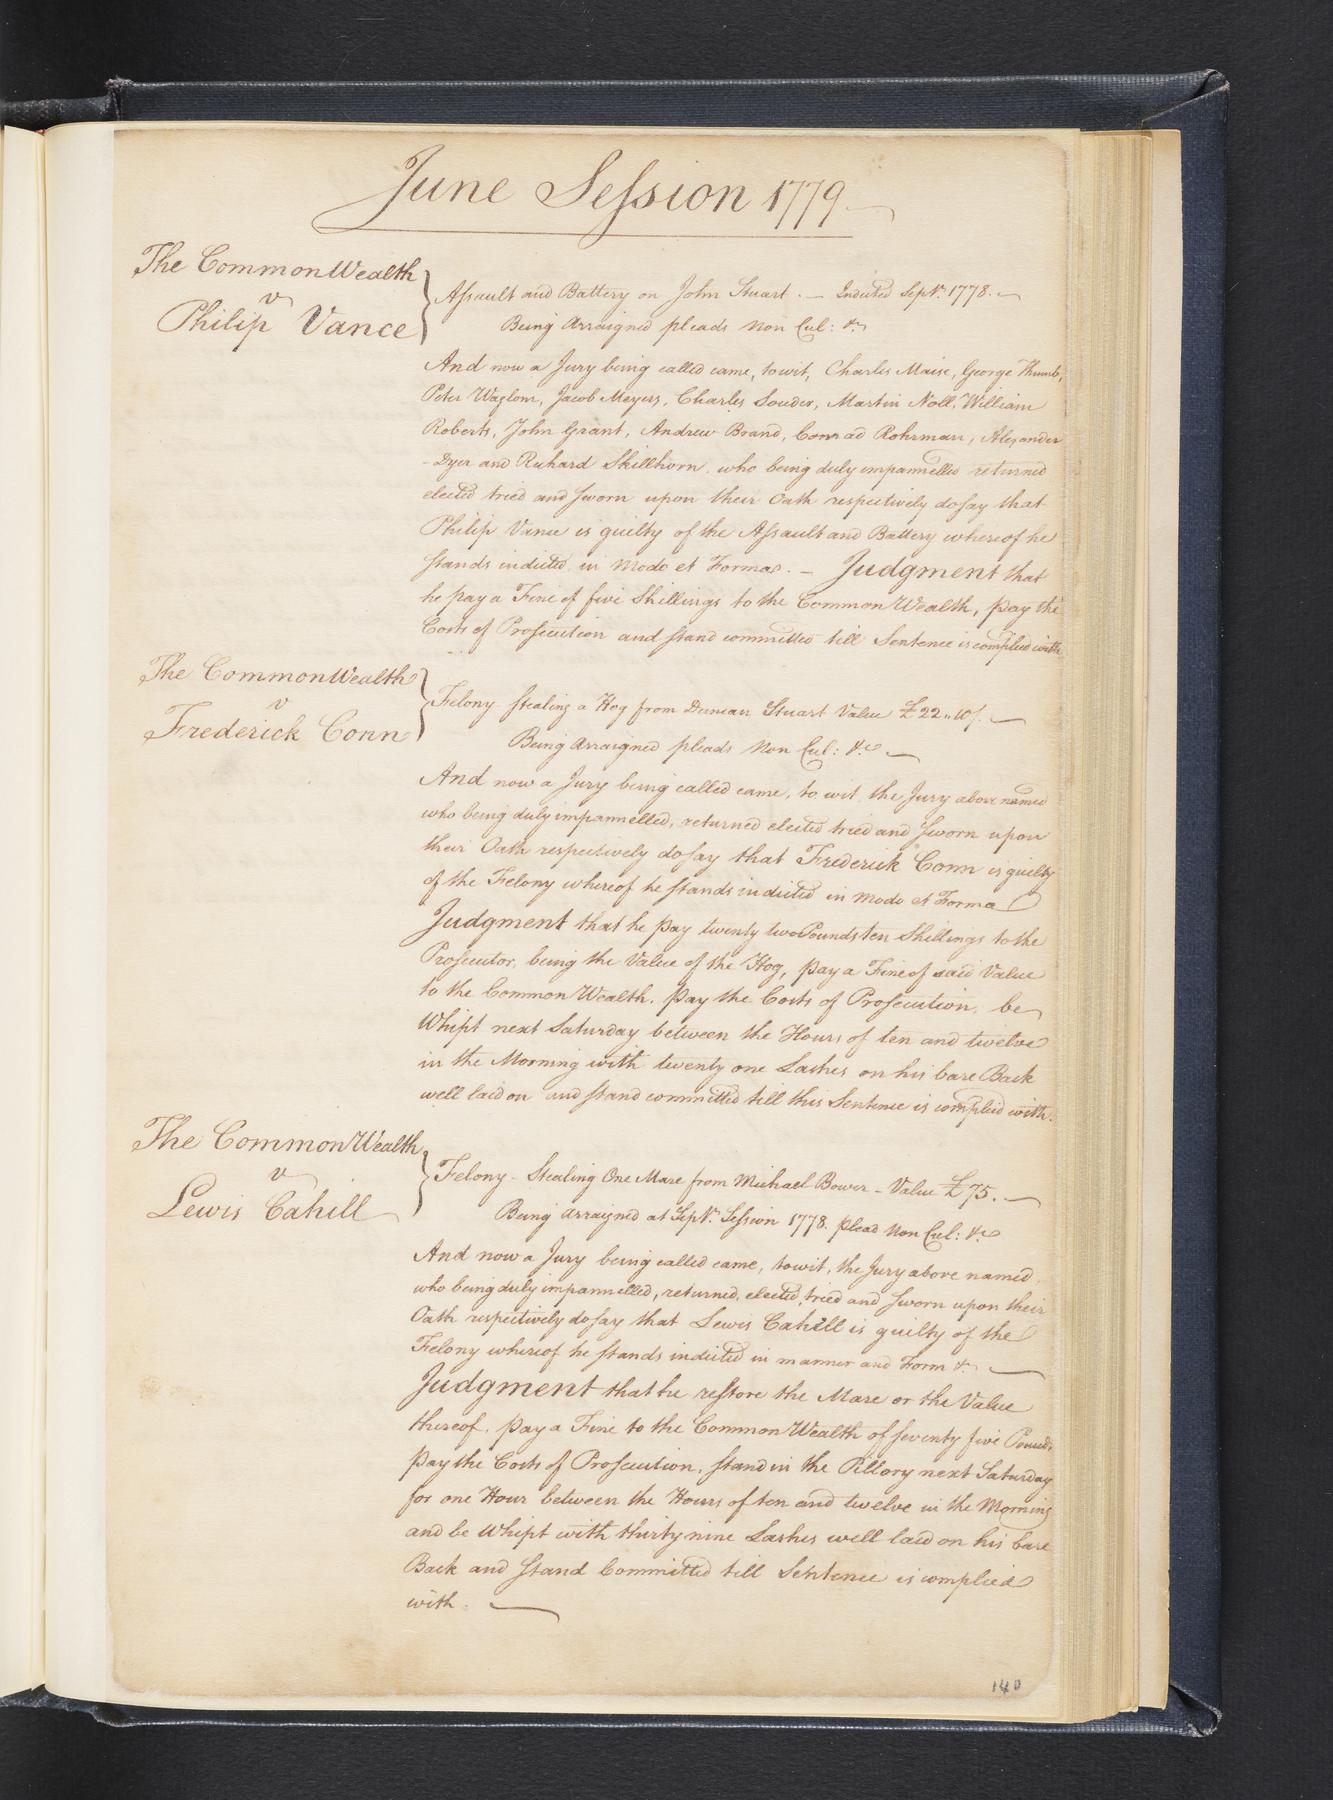 June Session 1779
The CommonWealth
v
Philip Vance
Assault and Battery on John Stuart. — Indicted Sepr. 1778. —
Being Arraigned pleads Non Cul: &c
And now a Jury being called came, towit, Charles Maise, George Thumb,
Peter Waglom, Jacob Meyers, Charles Souder, Martin Noll, William
Roberts, John Grant, Andrew Brand, Conrad Rohrman, Alexander
Dyer and Richard Skillhorn. who being duly impannelled returned
elected tried and sworn upon their Oath respectively do say that
Philip Vance is guilty of the Assault and Battery whereof he
stands indicted in Modo et Forma. — Judgment that
he pay a Fine of five Shillings to the CommonWealth, pay the
Costs of Prosecution and stand committed till Sentence is complied with
The CommonWealth
v
Frederick Conn
Felony. Stealing a Hog from Duncan Stuart Value £22..10/. —
Being Arraigned pleads Non Cul: &c —
And now a Jury being called came, to wit, the Jury above named
who being duly impannelled, returned elected tried and sworn upon
their Oath respectively do say that Frederick Conn is guilty
of the Felony whereof he stands indicted in Modo et Forma
Judgment that he pay twenty two Pounds ten Shillings to the
Prosecutor, being the Value of the Hog, pay a Fine of said Value
to the CommonWealth, pay the Costs of Prosecution, be
Whipt next Saturday between the Hours of ten and twelve
in the Morning with twenty one Lashes on his bare Back
well laid on and stand committed till this Sentence is complied with.
The CommonWealth
v
Lewis Cahill
Felony - Stealing One Mare from Michael Bower - Value £75. —
Being Arraigned at Sepr. Session 1778. plead Non Cul: &c
And now a Jury being called came, towit, the Jury above named,
who being duly impannelled, returned, elected, tried and sworn upon their
Oath respectively do say that Lewis Cahill is guilty of the
Felony whereof he stands indicted in manner and Form &c —
Judgment that he restore the Mare or the Value
thereof, pay a Fine to the CommonWealth of seventy five Pounds,
pay the Costs of Prosecution, stand in the Pillory next Saturday
for one Hour between the Hours of ten and twelve in the Morning
and be Whipt with thirty nine Lashes well laid on his bare
Back and Stand Committed till Sentence is complied
with. —
140